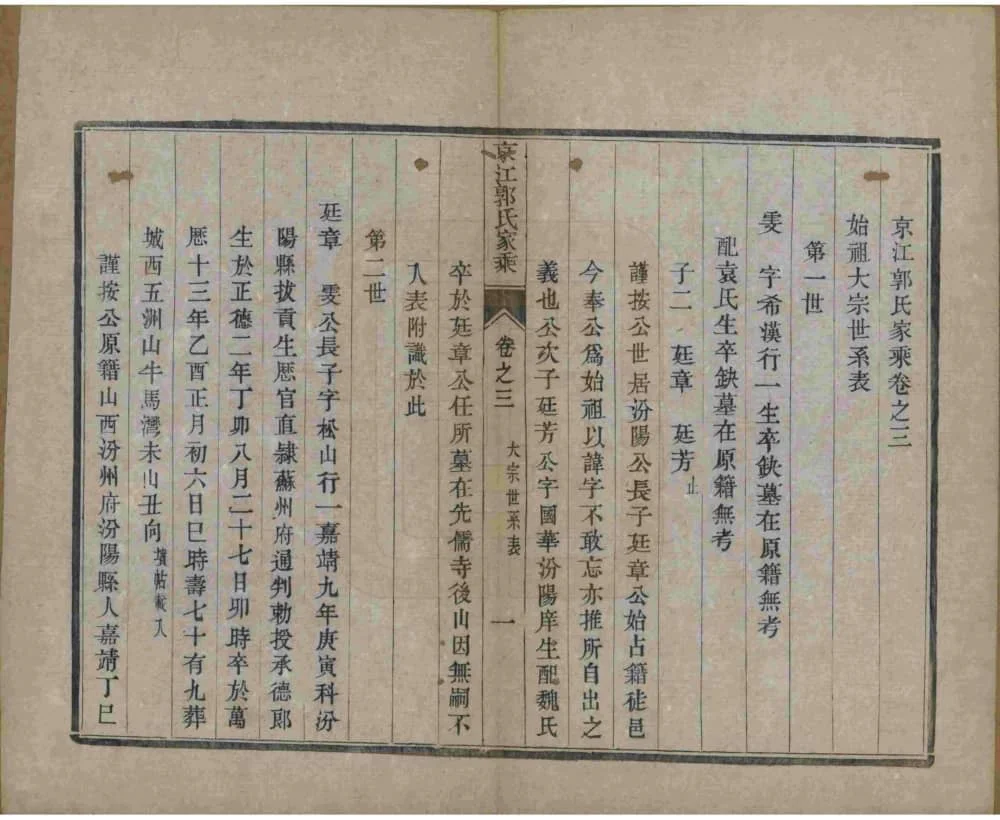 京江郭氏家乘卷之三
始祖大宗世系表
第一世
雯 字希漢行一生卒缺墓在原籍無考
配袁氏生卒缺墓在原籍無考
子二 廷章 廷芳 止
謹按公世居汾陽公長子廷章公始占籍徒邑
今奉公爲始祖以諱字不敢忘亦推所自出之
義也公次子廷芳公字國華汾陽庠生配魏氏
卒於廷章公任所墓在先儒寺後山因無嗣不
入表附識於此
京江郭氏家乘 卷之三 大宗世系表 一
第二世
廷章 雯公長子字松山行一嘉靖九年庚寅科汾
陽縣拔貢生歷官直隸蘇州府通判勅授承德郎
生於正德二年丁卯八月二十七日卯時卒於萬
厯十三年乙酉正月初六日巳時壽七十有九葬
城西五洲山牛馬灣未山丑向 墳帖載入
謹按公原籍山西汾州府汾陽縣人嘉靖丁巳